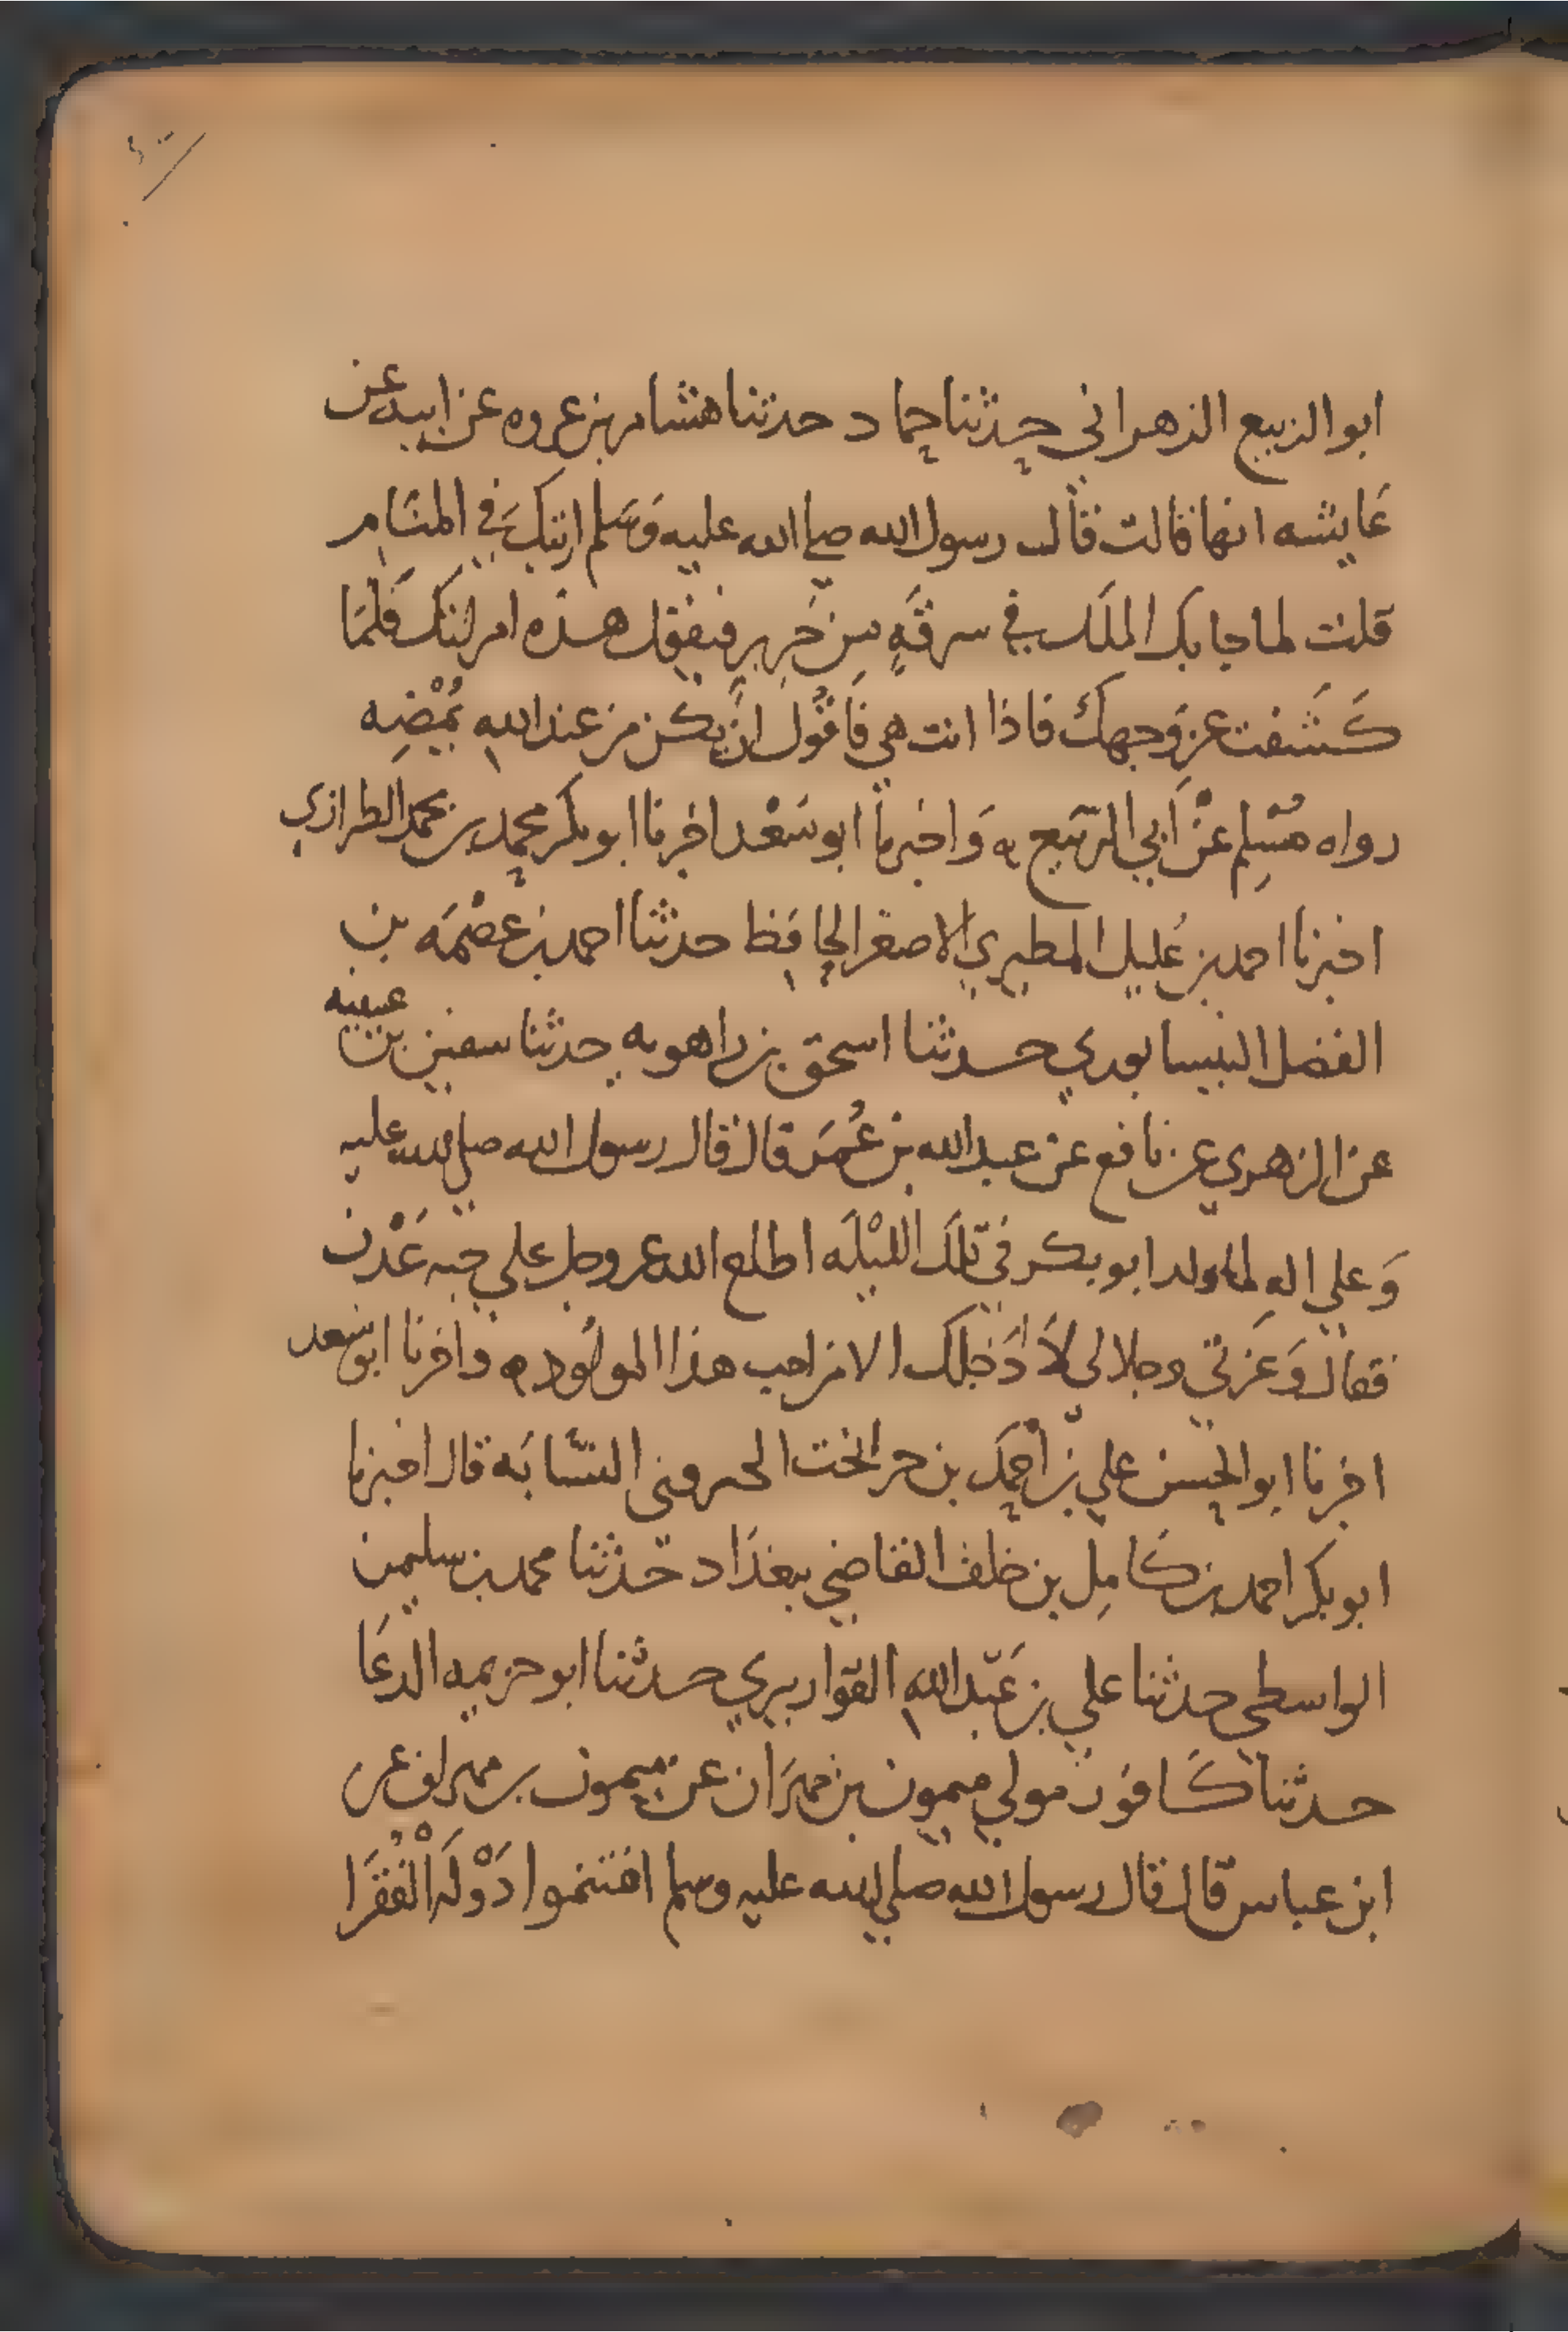 ابو الربيع الزهراني حدثنا حماد حدثنا هشام بن عروه عن ابيه عن
عايشه انها قالت قال رسول الله صلي الله عليه وَسَلم اريتكِ في المنَام
قلت لما جا بك الملَك في سرقَةٍ من حَرِيرٍ فيقول هذه امر فلمَا
كَشَفت عن وَجهكِ فاذا انت هي فَاقُول انْ يكن من عند اللهِ يُمْضِه
رواه مُسْلِم عَنْ ابي الربيع ه وَاخبرنا ابو سَعْد اخبرنا ابو بكر محمد بن محمد الطرازي
اخبرنا احمد بن عُليل المطيري الاصغر الحافظ حدثنا احمد بن عصْمَه بن
الفضل النيسابوري حدثنا اسحق بن راهويه حدثنا سفين بن عيينه
عن الزهري عن نافع عن عبد الله بن عُمَر قال قال رسول الله صلي الله عليه
وَعلي الهِ لما ولد ابو بكر في تلكَ الليْلَه اطلع الله عز وجل علي جنه عَدْن
فقال وَعَزتي وجلالي لاَ ادَخلك الا من احب هذا المولُود ه واخبرنا ابو سعد
اخبرنا ابو الحسن علي بن أحمَد بن النسَّابَه قال اخبرنا
ابو بكر احمد بن كَامِل بن خلف القاضي ببغدَاد حَدثنا محمد بن سليمن
الواسطي حدثنا علي بن عَبْد اللهِ القواريري حدثنا ابو خزيمه الدعَا
حدثنا كَافوُر مولي ميمون بن مهرَان عن ميمون بن مهران عن
ابن عباس قال قال رسول الله صلي الله عليه وسلم اغتنموا دَوْلَه الْفُقَرَا